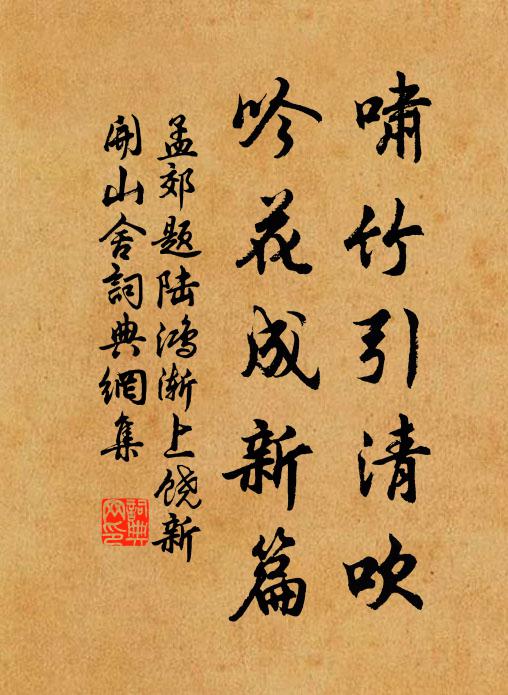 嘯竹引清吹
吟花成新篇
孟郊題陸鴻漸上饒新
開山舍詞典網集
詞典
网印